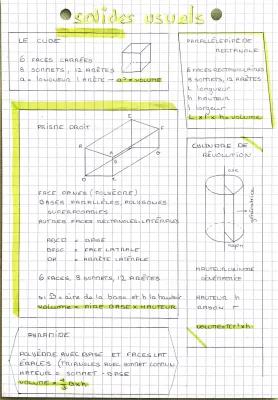 solides usuels
LE CUBE
6 FACES CARRÉES
8 SOMMETS, 12 ARÊTES
a = LONGUEUR 1 ARÊTE → a³ = VOLUME
PARALLÉLÉPIPÈDE
RECTANGLE
6 FACES RECTANGULAIRES
8 SOMMETS, 12 ARÊTES
L longueur
h hauteur
l largeur
L x l x h = VOLUME
PRISME DROIT
FACE PLANES (POLYÈDRE)
BASES PARALLÈLES, POLYGONES
SUPERPOSABLES
AUTRES FACES RECTANGLES LATÉRALES
ABCD = BASE
= FACE LATÉRALE
= ARRÊTE LATÉRALE
6 FACES, 8 SOMMETS, 12 ARÊTES
si B = aire de la base et h la hauteur
VOLUME = AIRE BASE X HAUTEUR
CYLINDRE DE
RÉVOLUTION
axe
génératrice
rayon
HAUTEUR CYLINDRE
GÉNÉRATRICE
HAUTEUR h
RAYON r
VOLUME = πr² x h
PYRAMIDE
POLYÈDRE AVEC BASE ET FACES LAT
ÉRALES (TRIANGLES AVEC SOMMET COMMUN
HAUTEUR = SOMMET - BASE
VOLUME = 1/3 B x h